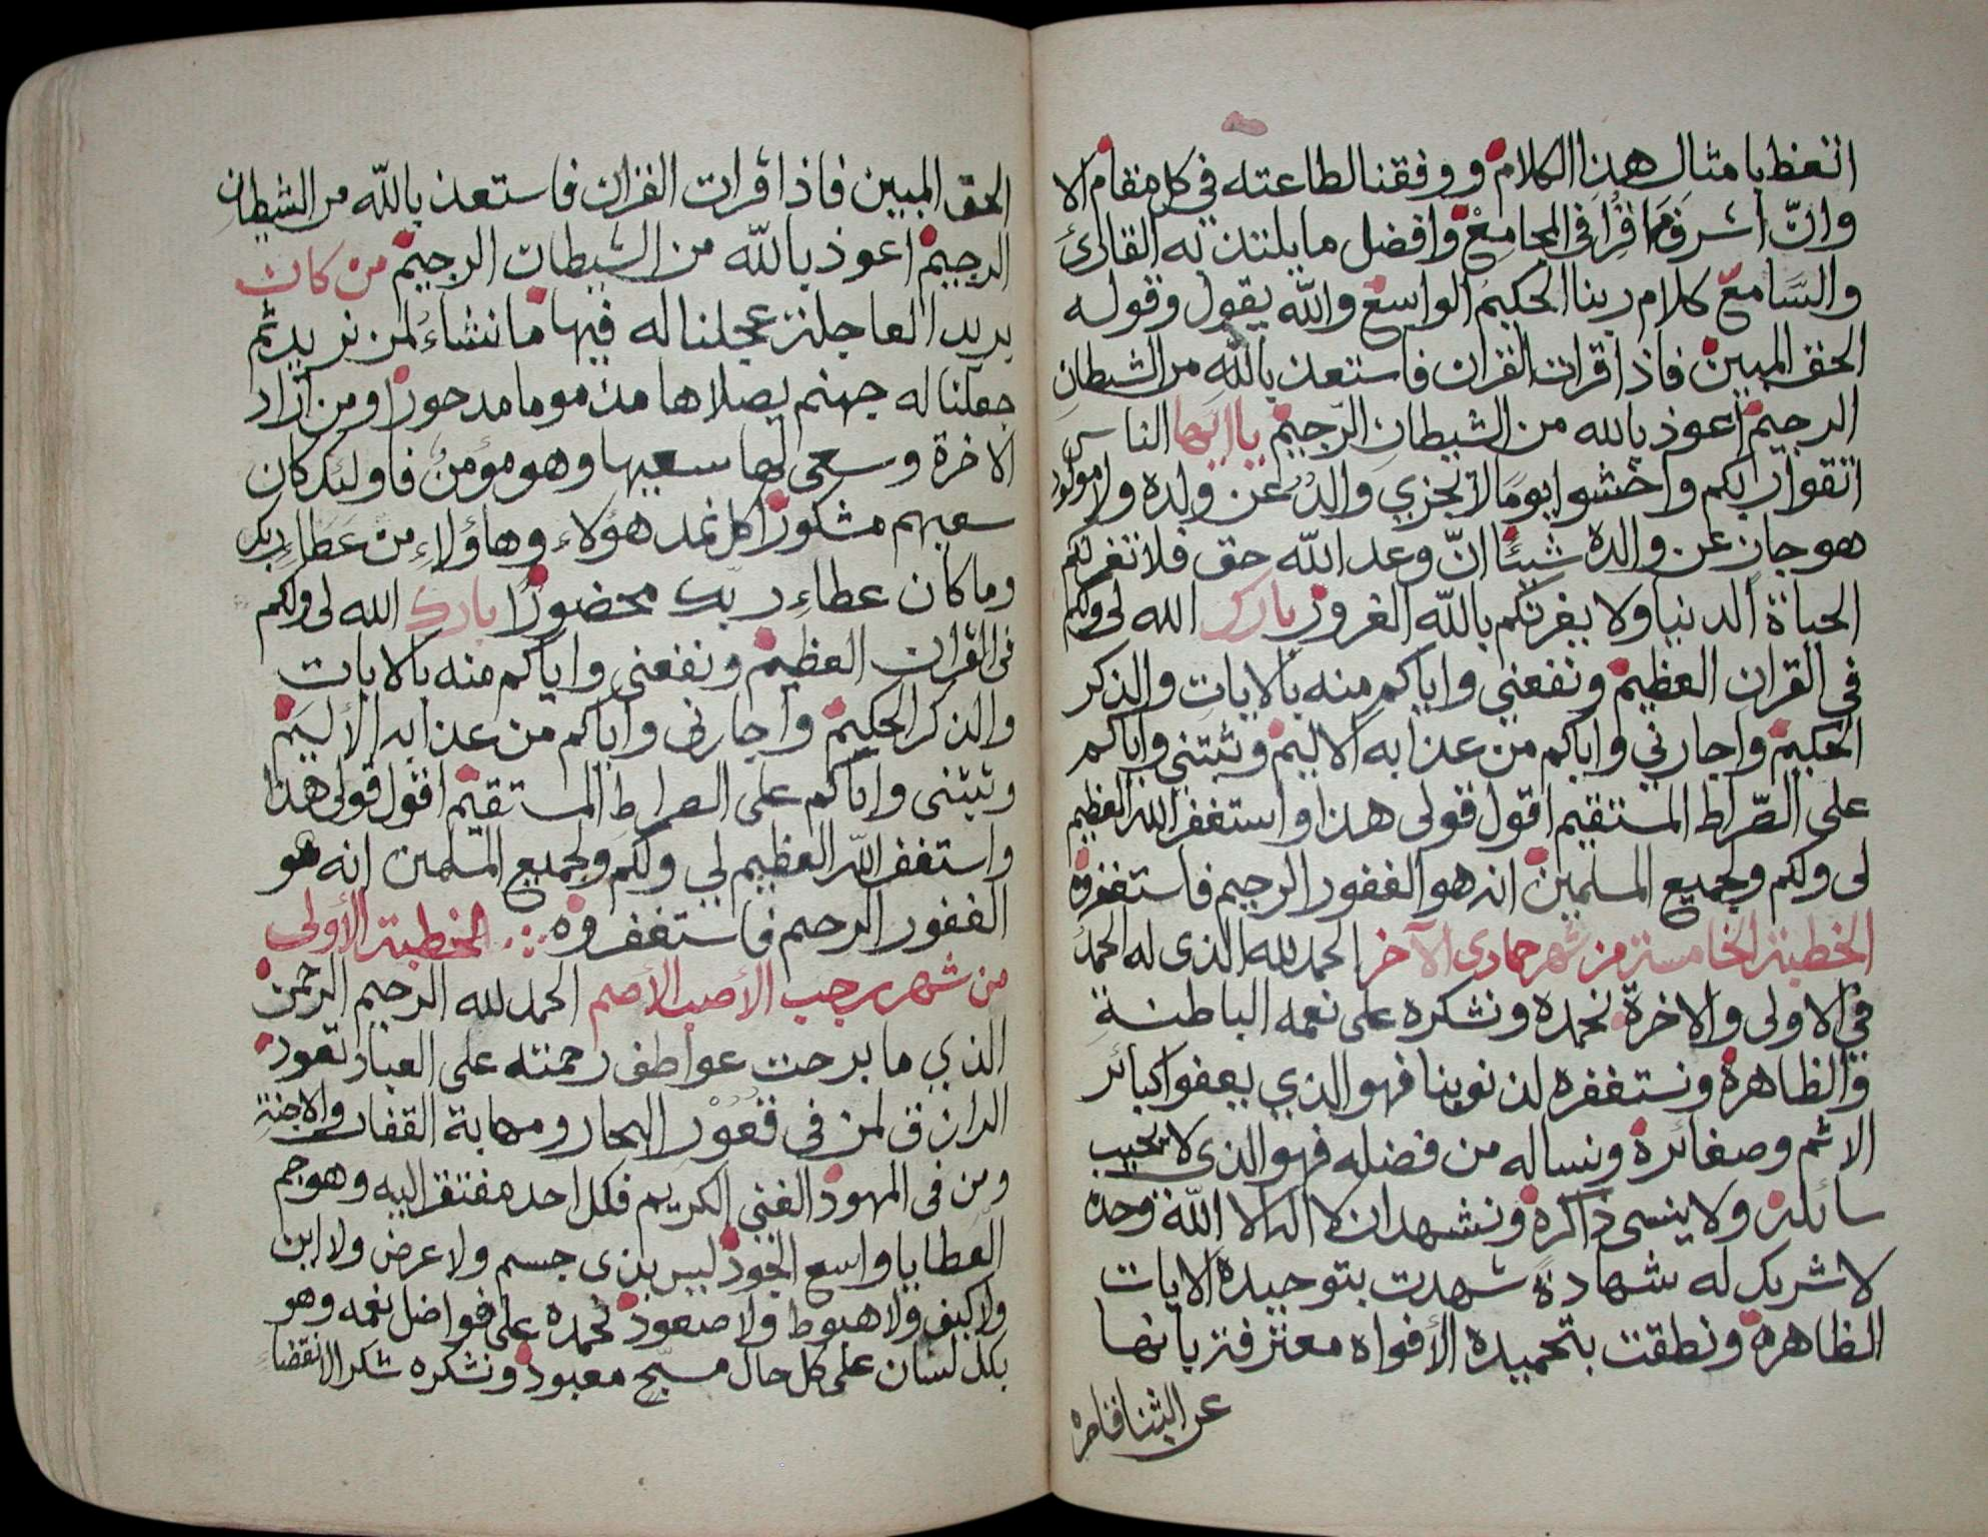 اتعظ بامثال هذا الكلام ووفقنا لطاعته في كل مقام الا
وانّ اشرف ما قرا في المجامع وافضل ما يلتذ به القارئ
والسامع كلام ربنا الحكيم الواسع والله يقول وقوله
الحق المبين فاذا قرات القران فاستعذ بالله من الشيطان
الرجيم اعوذ بالله من الشيطان الرّجيم يا ايها الناس
اتقوا ربكم واخشوا يوما لا يجزي والدٌ عن ولده ولا مولود
هو جازٍ عن والده شيئًا انّ وعد الله حق فلا تغرنكم
الحياة الدنيا ولا يغرنكم بالله الغرور بارك الله لي ولكم
في القران العظيم ونفعني واياكم منه بالايات والذكر
الحكيم واجارني واياكم من عذابه الاليم وثبتني واياكم
على الصّراط المستقيم اقول قولى هذا واستغفر الله العظيم
لى ولكم ولجميع المسلمين انه هو الغفور الرحيم فاستغفروه
الخطبة الخامسة من شهر جمادى الآخر الحمد لله الذى له الحمدُ
في الاولى والاخرة نحمده ونشكره على نعمه الباطنة
والظاهرة ونستغفره لذنوبنا فهو الذي يعفوا كبائر
الاثم وصغائره ونساله من فضله فهو الذى لا يخيب
سائله ولا ينسى ذاكره ونشهد ان لا اله الا الله وحده
لا شريك له شهادة شهدت بتوحيده الايات
الظاهرة ونطقت بتحميده الأفواه معترفة بانها
عن الثنا قاصره
الحق المبين فاذا قرات القران فاستعذ بالله من الشيطان
الرجيم اعوذ بالله من الشيطان الرجيم من كان
يريد العاجلة عجلنا له فيها ما نشاء لمن نريد ثم
جعلنا له جهنم يصلاها مذموما مدحورا ومن اراد
الاخرة وسعى لها سعيها وهو مؤمن فاولئك كان
سعيهم مشكورا كل نمد هؤلاء وهاؤلاءِ من عطاءِ ربك
وما كان عطاءِ ربك محضورًا بارك الله لى ولكم
في القران العظيم ونفعني واياكم منه بالايات
والذكر الحكيم واجارنى واياكم من عذابه الأليم
وثبتنى واياكم على الصراط المستقيم اقول قولى هذا
واستغفر الله العظيم لي ولكم ولجميع المسلمين انه هو
الغفور الرحيم فاستغفروه الخطبة الأولى
من شهر رجب الأصب الأصم الحمد لله الرحيم الرحمن
الذي ما برحت عواطف رحمته على العباد تعود
الرازق لمن فى قعور البحار ومهابة القفار والاجنة
ومن فى المهود الغني الكريم فكل احد مفتقر اليه وهو جم
العطايا واسع الجود ليس بذى جسم ولا عرض ولا اين
ولا كيف ولا هبوط ولا صعود نحمده على فواضل نعمه وهو
بكل لسان على كل حال مسبّح معبود ونشكره شكر الانقضاءِ